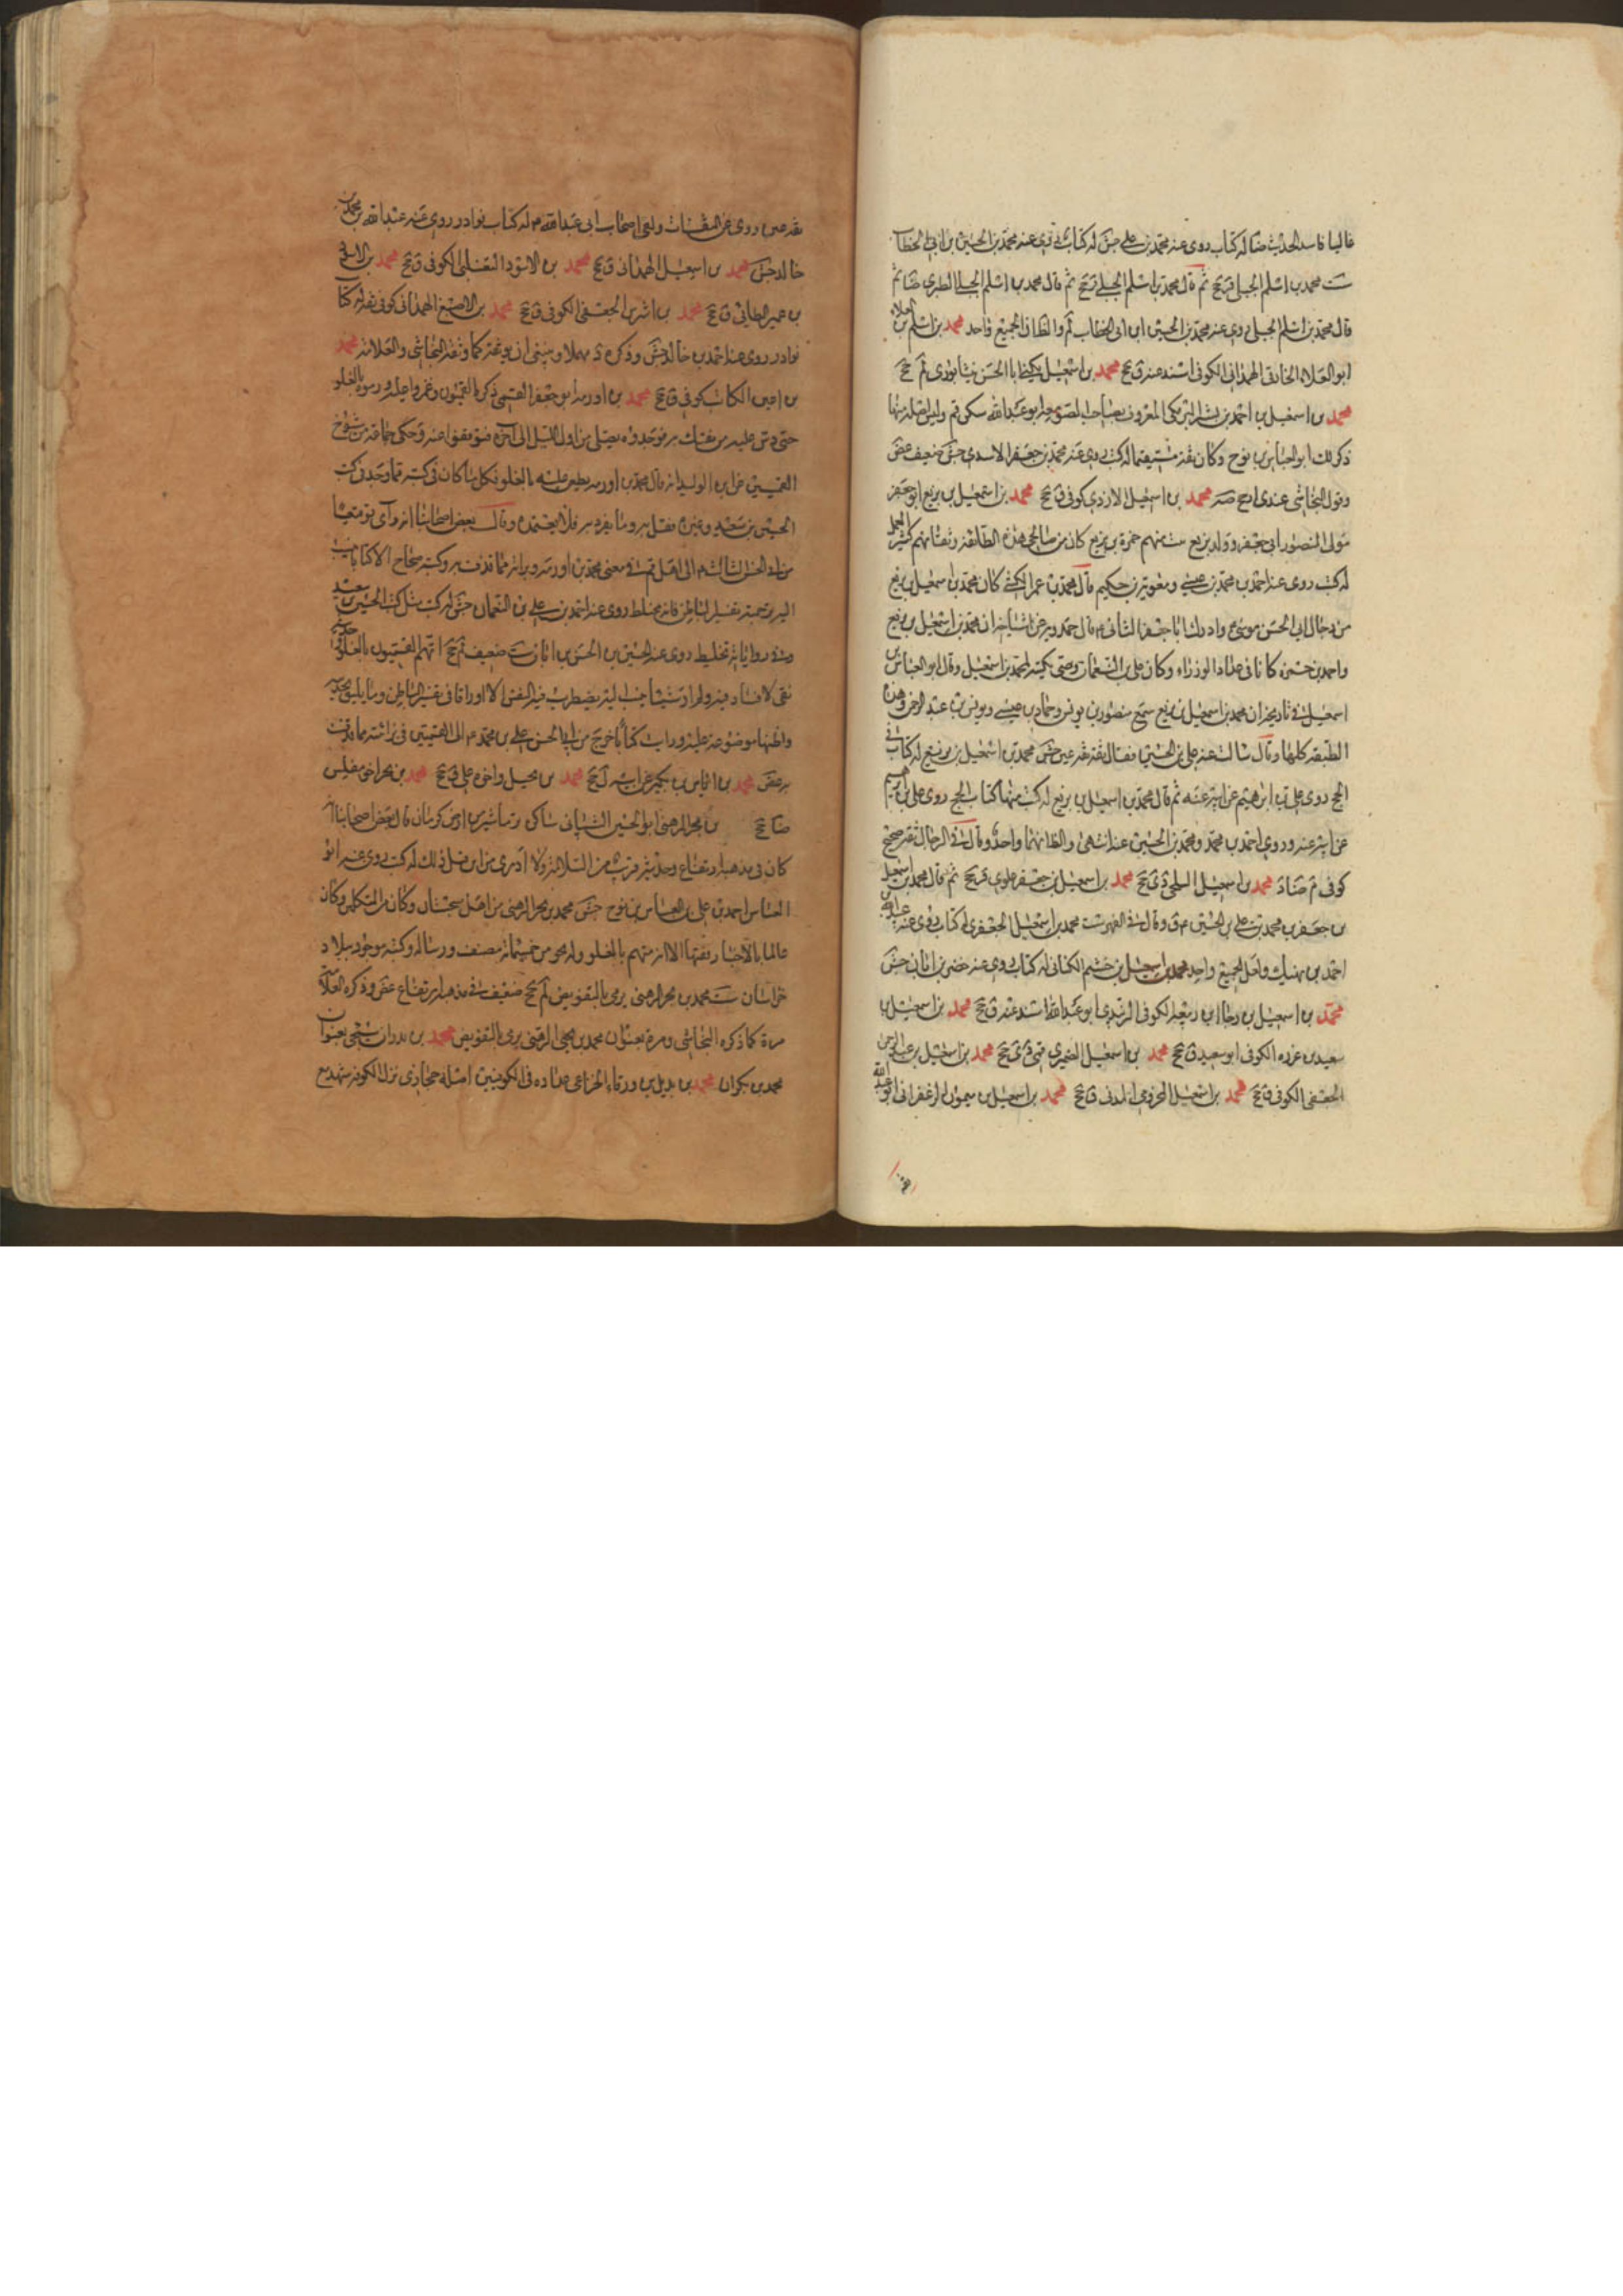 غاليا فاسد الحديث صا له كتاب روى عنه محمد بن علي جش له كتاب روى عنه محمد بن الحسين بن ابي الخطاب
ست محمد بن اسلم الجبلي قر جخ ثم قال محمد بن اسلم الجبلي جخ ثم قال محمد بن اسلم الجبلي الطبري ضا ثم
قال محمد بن اسلم الجبلي روى عنه محمد بن الحسين ابن ابي الخطاب لم والظاهر ان الجميع واحد محمد بن اسلم بن العلاء
ابو العلاء الخارفي الهمداني الكوفي اسند عنه ق جخ محمد بن اسمعيل يكنى ابا الحسن نيشابوري لم جخ
محمد بن اسمعيل بن احمد بن بشير البرمكي المعروف بصاحب الصومعة ابو عبد الله سكن قم وليس اصله منها
ذكر ذلك ابو العباس بن نوح وكان ثقة مستقيما له كتب روى عنه محمد بن جعفر الاسدي جش ضعيف غض
وقول النجاشي عندي ارجح صه محمد بن اسمعيل الازدي كوفي ق جخ محمد بن اسمعيل بن بزيع ابو جعفر
مولى المنصور ابي جعفر وولد بزيع بيت منهم حمزة بن بزيع كان من صالحي هذه الطائفة وثقاتهم كثير العمل
له كتب روى عنه احمد بن محمد بن عيسى ومعوية بن حكيم قال محمد بن عمر الكشي كان محمد بن اسمعيل بن بزيع
من رجال ابي الحسن موسى م وادرك ابا جعفر الثاني م قال حمدويه عن اشياخه ان محمد بن اسمعيل بن بزيع
واحمد بن حمزة كانا في عداد الوزراء وكان علي بن النعمان وصى بكتبه لمحمد بن اسمعيل وقال ابو العباس بن
اسمعيل في تاريخه ان محمد بن اسمعيل بن بزيع سمع منصور بن يونس وحماد بن عيسى ويونس بن عبد الرحمن وهذه
الطبقة كلها وقال سالت عنه علي بن الحسين فقال ثقة ثقة عين جش محمد بن اسمعيل بن بزيع له كتاب في
الحج روى علي بن ابرهيم عن ابيه عنه ثم قال محمد بن اسمعيل بن بزيع له كتب منها كتاب الحج روى علي بن ابرهيم
عن ابيه عنه وروى احمد بن محمد ومحمد بن الحسين عنه انتهى والظاهر انهما واحد وقال في الرجال ثقة صحيح
كوفي م ضا د محمد بن اسمعيل السلمي ق جخ محمد بن اسمعيل بن جعفر علوي قر جخ ثم قال محمد بن اسمعيل
بن جعفر بن محمد بن علي بن الحسين م ق وقال في الفهرست محمد بن اسمعيل الجعفري له كتاب روى عنه عبد الله بن
احمد بن نهيك ولعل الجميع واحد محمد بن اسمعيل بن خثيم الكناني له كتاب روى عنه خضر بن ابان جش
محمد بن اسمعيل بن رجاء بن ربيعة الكوفي الزبيدي ابو عبد الله اسند عنه ق جخ محمد بن اسمعيل بن
سعيد بن عزرة الكوفي ابو سعيد ق جخ محمد بن اسمعيل الضميري قمي دي جخ محمد بن اسمعيل بن عبد الرحمن
الجعفي الكوفي ق جخ محمد بن اسمعيل المخزومي المدني ق جخ محمد بن اسمعيل بن ميمون الزعفراني ابو عبد الله
ثقة
ثقة عين روى عن الثقات ولقى اصحاب ابي عبد الله م له كتاب نوادر روى عنه عبد الله بن محمد بن
خالد جش محمد بن اسمعيل الهمداني ق جخ محمد بن الاسود التغلبي الكوفي ق جخ محمد بن الاشعث
بن عمير الطائي ق جخ محمد بن اشرس الجعفي الكوفي ق جخ محمد بن الاصبغ الهمداني كوفي ثقة له كتاب
نوادر روى عنه احمد بن خالد جش وذكره د مهملا وينبغي ان يوثقه كما وثقه النجاشي والعلامة محمد
بن امين الكاتب كوفي ق جخ محمد بن اورمة ابو جعفر القمي ذكره القميون وغمزوا عليه ورموه بالغلو
حتى دس عليه من يفتك به فوجدوه يصلي من اول الليل الى آخره فتوقفوا عنه وحكى جماعة من شيوخ
القميين عن ابن الوليد انه قال محمد بن اورمة طعن عليه بالغلو فكل ما كان في كتبه مما وجد في كتب
الحسين بن سعيد وغيره فقل به وما تفرد به فلا تعتمده وقال بعض اصحابنا انه رأى توقيعا
من ابي الحسن الثالث م الى اهل قم في معنى محمد بن اورمة وبراءته مما قذف به وكتبه صحاح الا كتابا ينسب
اليه ترجمته تفسير الباطن فانه مختلط روى عنه احمد بن علي بن النعمان جش له كتب مثل كتب الحسين بن سعيد
وفي رواياته تخليط روى عنه الحسين بن الحسن بن ابان ست ضعيف لم جخ اتهمه القميون بالغلو وحديثه
نقي لا فساد فيه ولم ار شيئا ينسب اليه يضطرب فيه النفس الا اوراقا في تفسير الباطن وما يليق بحديثه
واظنها موضوعة عليه ورايت كتابا خرج من ابي الحسن علي بن محمد م الى القميين في براءته مما قذف
به غض محمد بن الياس بن بكير عن ابيه ل جخ محمد بن بجيل واخوه علي ق جخ محمد بن بحر اخي مغلس
ضا جخ بن بحر الرهني ابو الحسين الشيباني ساكن نرماشير من ارض كرمان قال بعض اصحابنا انه
كان في مذهبه ارتفاع وحديثه قريب من السلامة ولا ادري من اين قيل ذلك له كتب روى عنه ابو
العباس احمد بن علي بن العباس بن نوح جش محمد بن بحر الرهني من اهل سجستان وكان من المتكلمين وكان
عالما بالاخبار فقيها الا انه متهم بالغلو وله نحو من خمسمائة مصنف ورسالة وكتبه موجود ببلاد
خراسان ست محمد بن بحر الرهني يرمى بالتفويض لم جخ ضعيف في مذهبه ارتفاع غض وذكره العلامة
مرة كما ذكره النجاشي ومرة بعنوان محمد بن يحيى الرهني يرمى بالتفويض محمد بن بدران سيجئ بعنوان
محمد بن بكران محمد بن بديل بن ورقاء الخزاعي عداده في الكوفيين اصله حجازي نزل الكوفة شهد مع